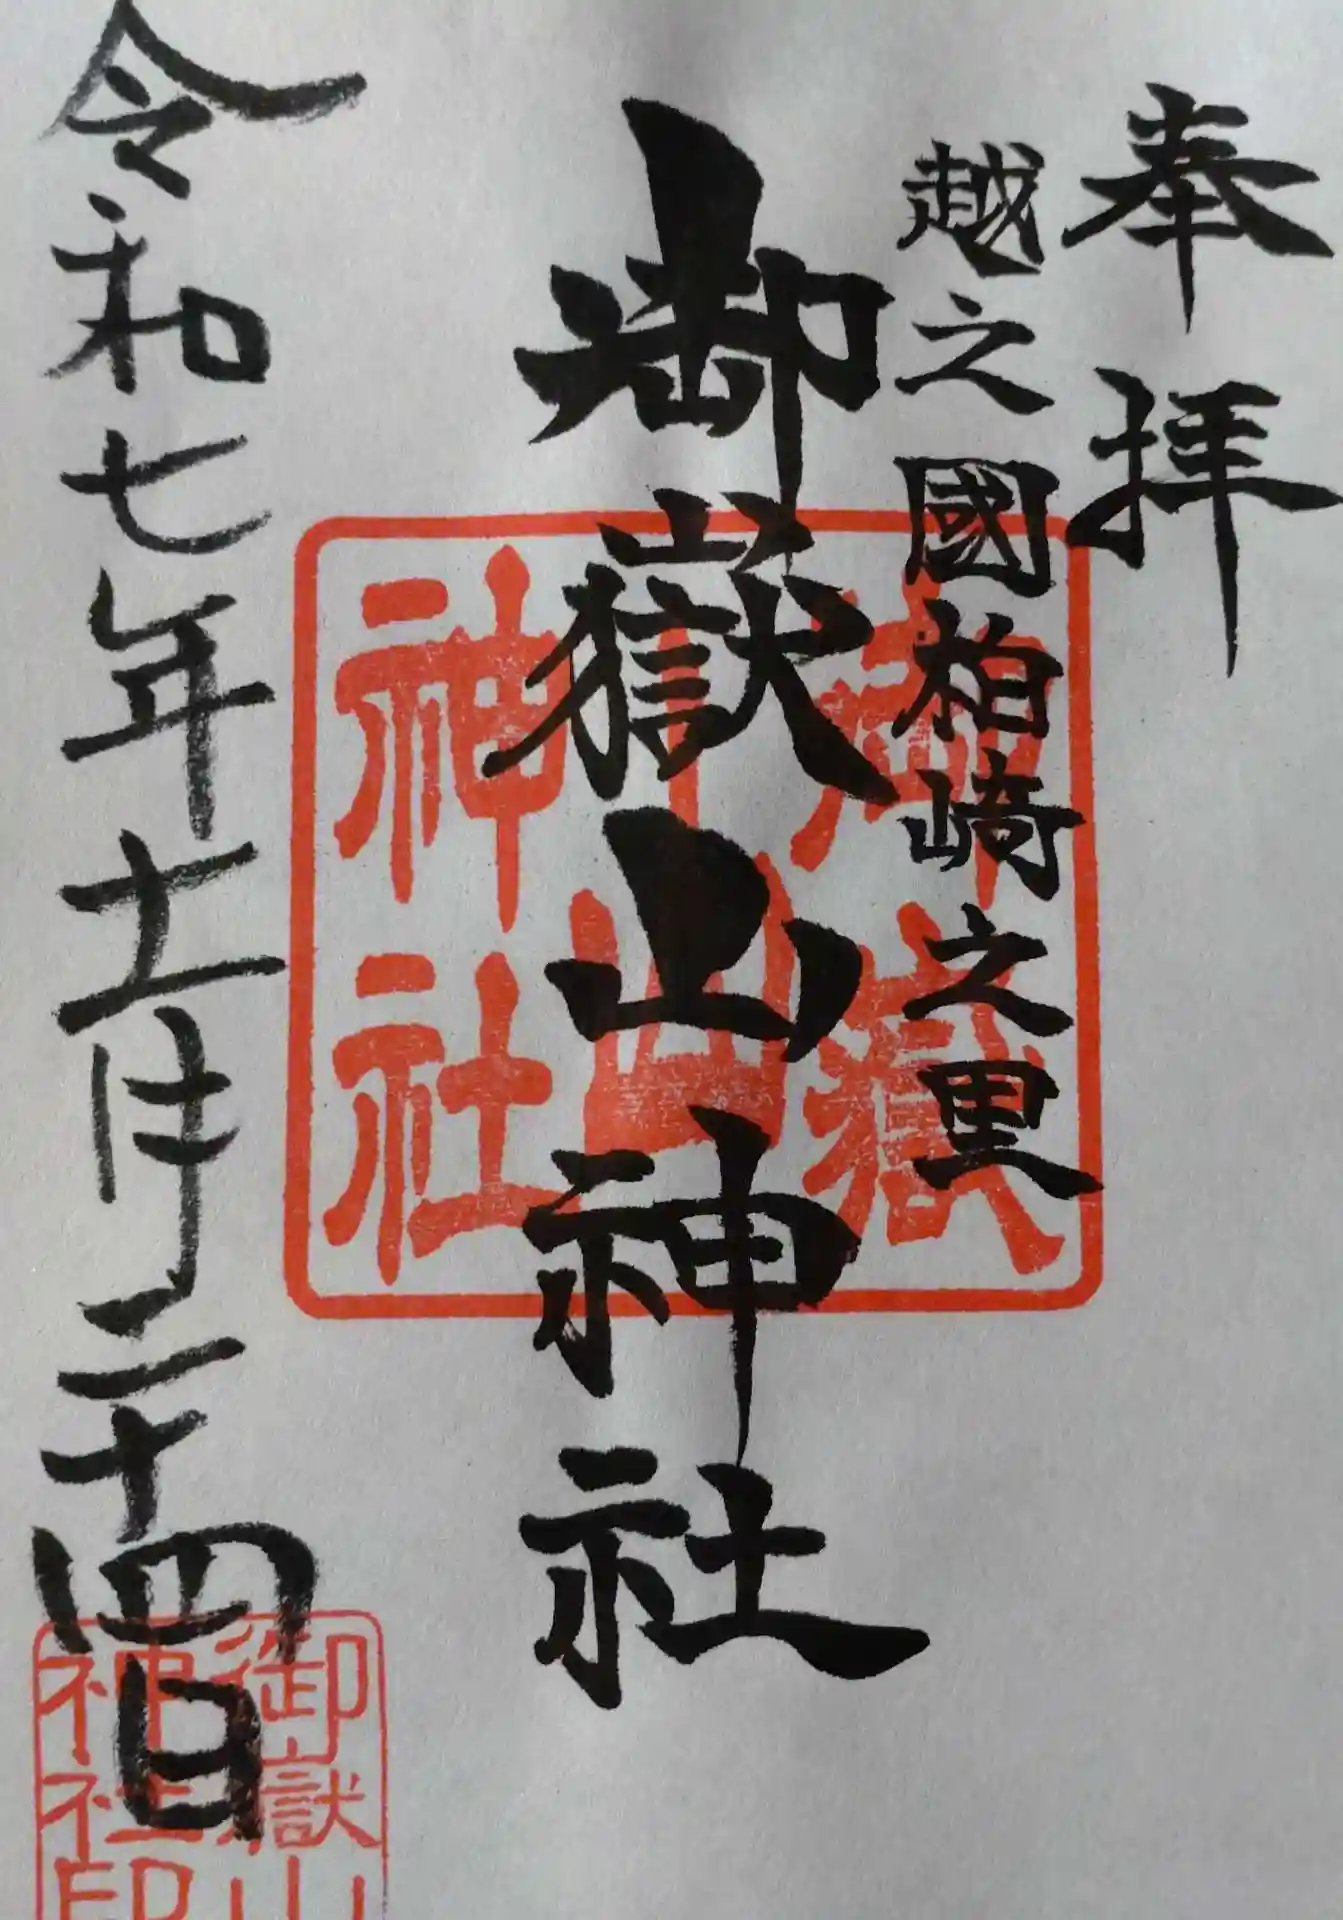 奉拝
越之國柏崎之里
御嶽山神社
御嶽山神社
令和七年十一月二十四日
御嶽山
神社印